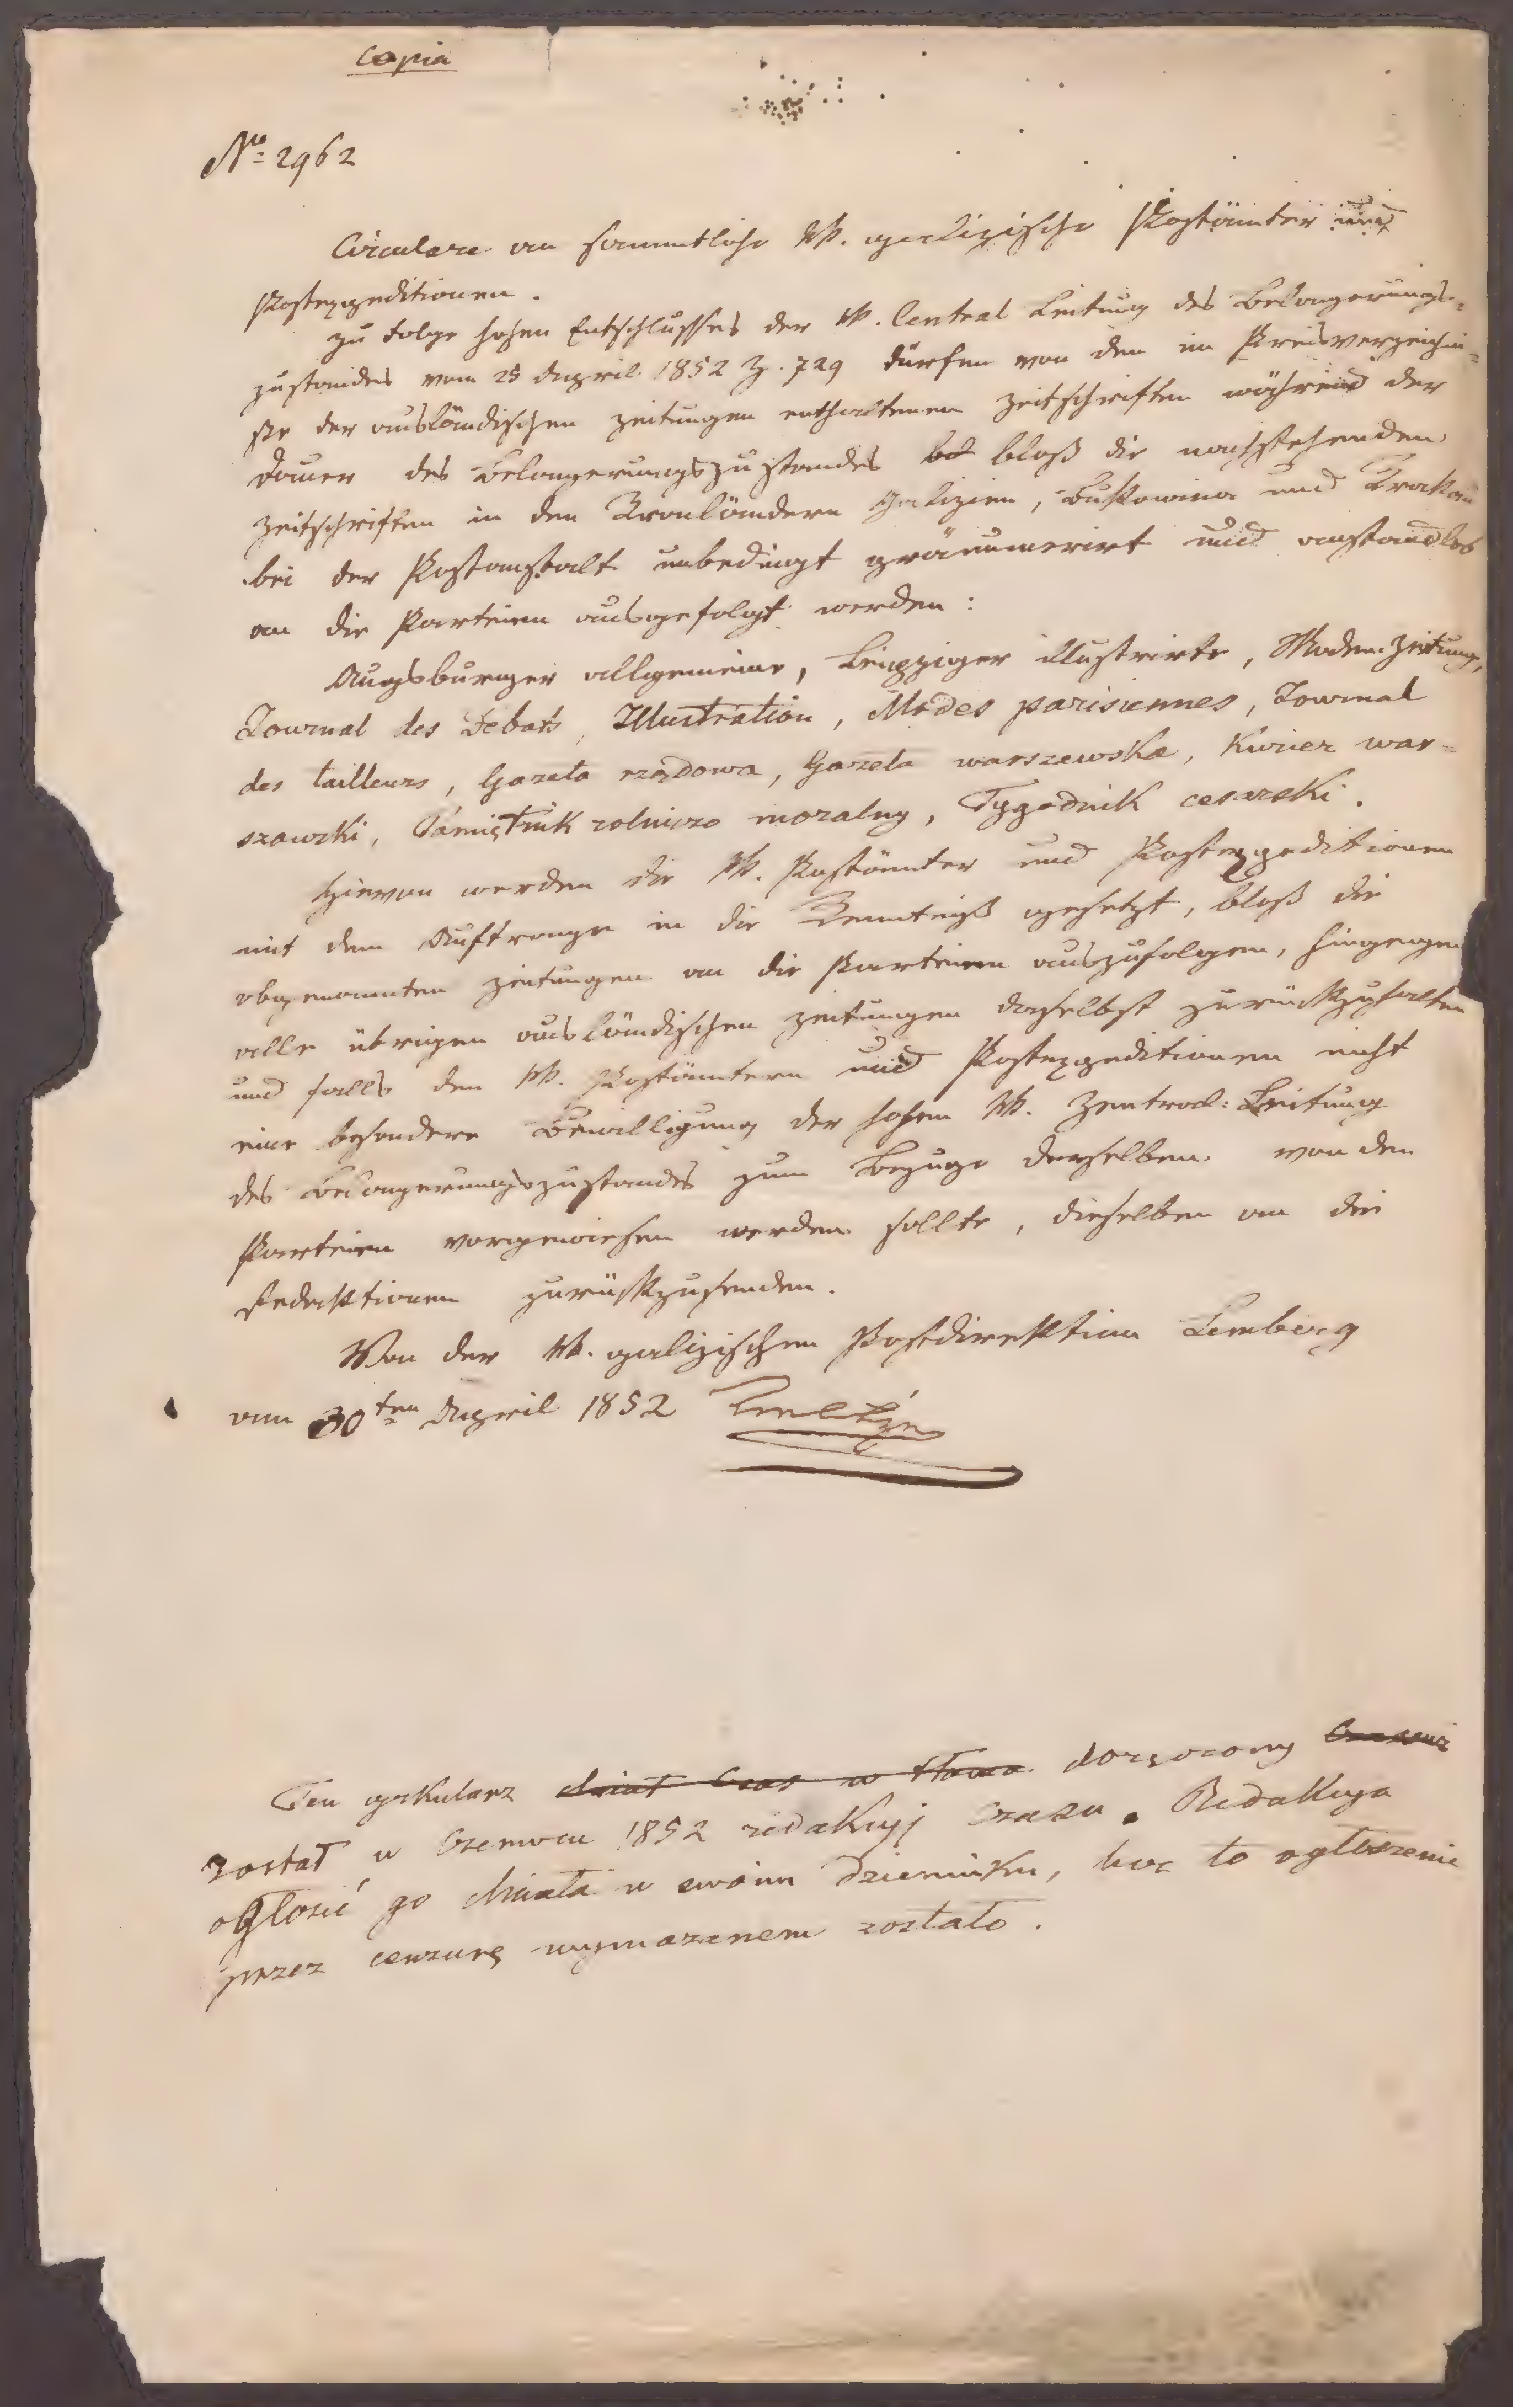 Copia
No 2962
Circulare an sammtliche kk. galizische Postämter und
Postexpeditionen.
Zu Folge hohen Entschlusses der kk. Central Leitung des Belagerungs-
zustandes vom 25 April 1852 Z. 729 dürfen von den im Preisverzeichni-
sse der ausländischen Zeitungen enthaltenen Zeitschriften während der
Dauer des Belagerungszustandes bloß die nachstehenden
Zeitschriften in den Kronländern Galizien, Bukowina und Krakau
bei der Postanstalt unbedingt pränumerirt und anstandlos
an die Parteien ausgefolgt werden:
Augsburger allgemeine, Leipziger illustrirte, Moden-Zeitung,
Journal des Debats, Illustration, Modes parisiennes, Journal
des tailleurs, Gazeta rządowa, Gazeta warszawska, Kurier war-
szawski, Pamiętnik rolniczo moralny, Tygodnik cesarski.
Hievon werden die kk. Postämter und Postexpeditionen
mit dem Auftrage in die Kenntniß gesetzt, bloß die
obgenannten Zeitungen an die Parteien auszufolgen, hingegen
alle übrigen ausländischen Zeitungen daselbst zurückzuhalten
und falls den kk. Postämtern und Postexpeditionen nicht
eine besondere Bewilligung der hohen kk. Zentral-Leitung
des Belagerungszustandes zum Bezuge derselben von den
Parteien vorgewiesen werden sollte, dieselben an die
Redaktionen zurückzusenden.
Von der kk. galizischen Postdirektion Lemberg
am 30ten April 1852
Ten cyrkularz doręczony
został w Czerwcu 1852 redakcyj Czasu. Redakcya
ogłosić go chciała w swoim dzienniku, lecz to ogłoszenie
przez cenzurę wymazanem zostało.